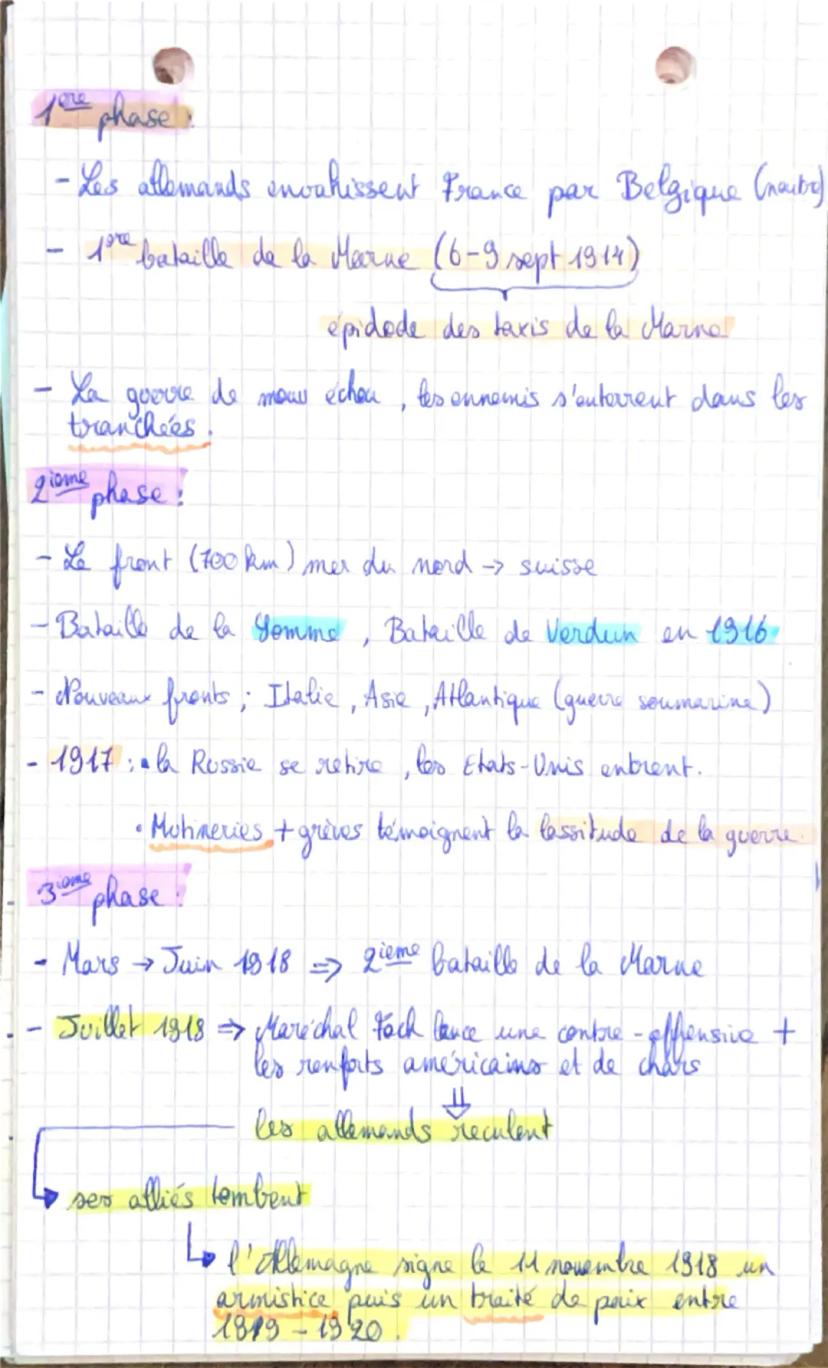 1ère phase :
- Les allemands envahissent France par Belgique (neutre)
- 1ère bataille de la Marne (6-9 sept 1914)
épidode des taxis de la Marne
- La guerre de mouv échou, les ennemis s'enterrent dans les
tranchées.
2ième phase :
- Le front (700 km) mer du nord → suisse
- Bataille de la Somme, Bataille de Verdun en 1916
- Nouveaux fronts ; Italie, Asie, Atlantique (guerre soumarine)
- 1917 : • la Russie se retire, les Etats-Unis entrent.
• Mutineries + grèves témoignent la lassitude de la guerre.
3ième phase :
- Mars → Juin 1918 => 2ième bataille de la Marne
- Juillet 1918 => Maréchal Foch lance une contre-offensive +
les renforts américains et de chars
⇓
les allemands reculent
ses alliés tombent
l'Allemagne signe le 11 novembre 1918 un
armistice puis un traité de paix entre
1919 - 1920.